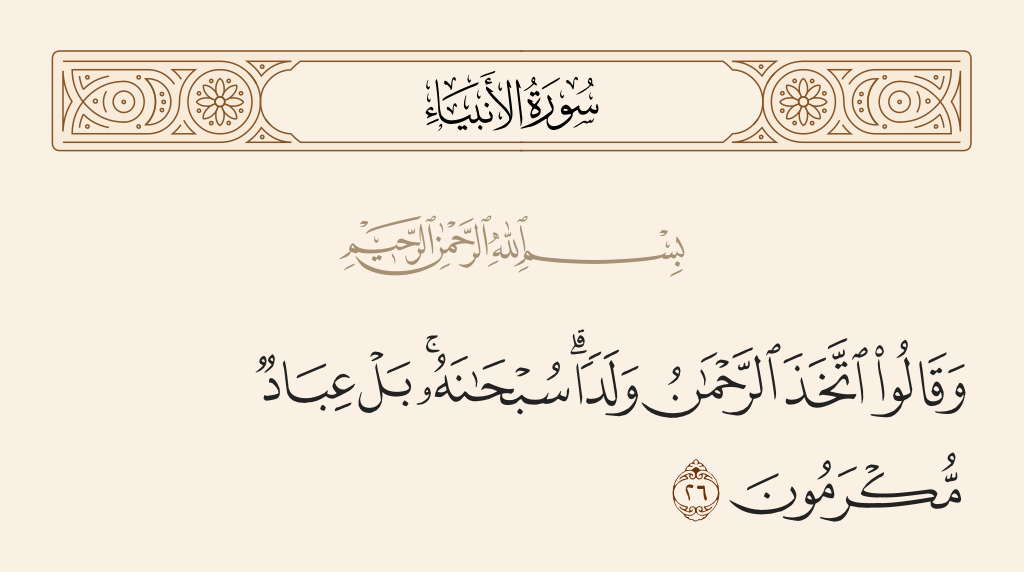 سُورَةُ الأَنبِيَاءِ
بِسْمِ ٱللَّهِ ٱلرَّحْمَٰنِ ٱلرَّحِيمِ
وَقَالُوا۟ ٱتَّخَذَ ٱلرَّحْمَٰنُ وَلَدًا ۗ سُبْحَٰنَهُۥ ۚ بَلْ عِبَادٌ
مُّكْرَمُونَ ٢٦